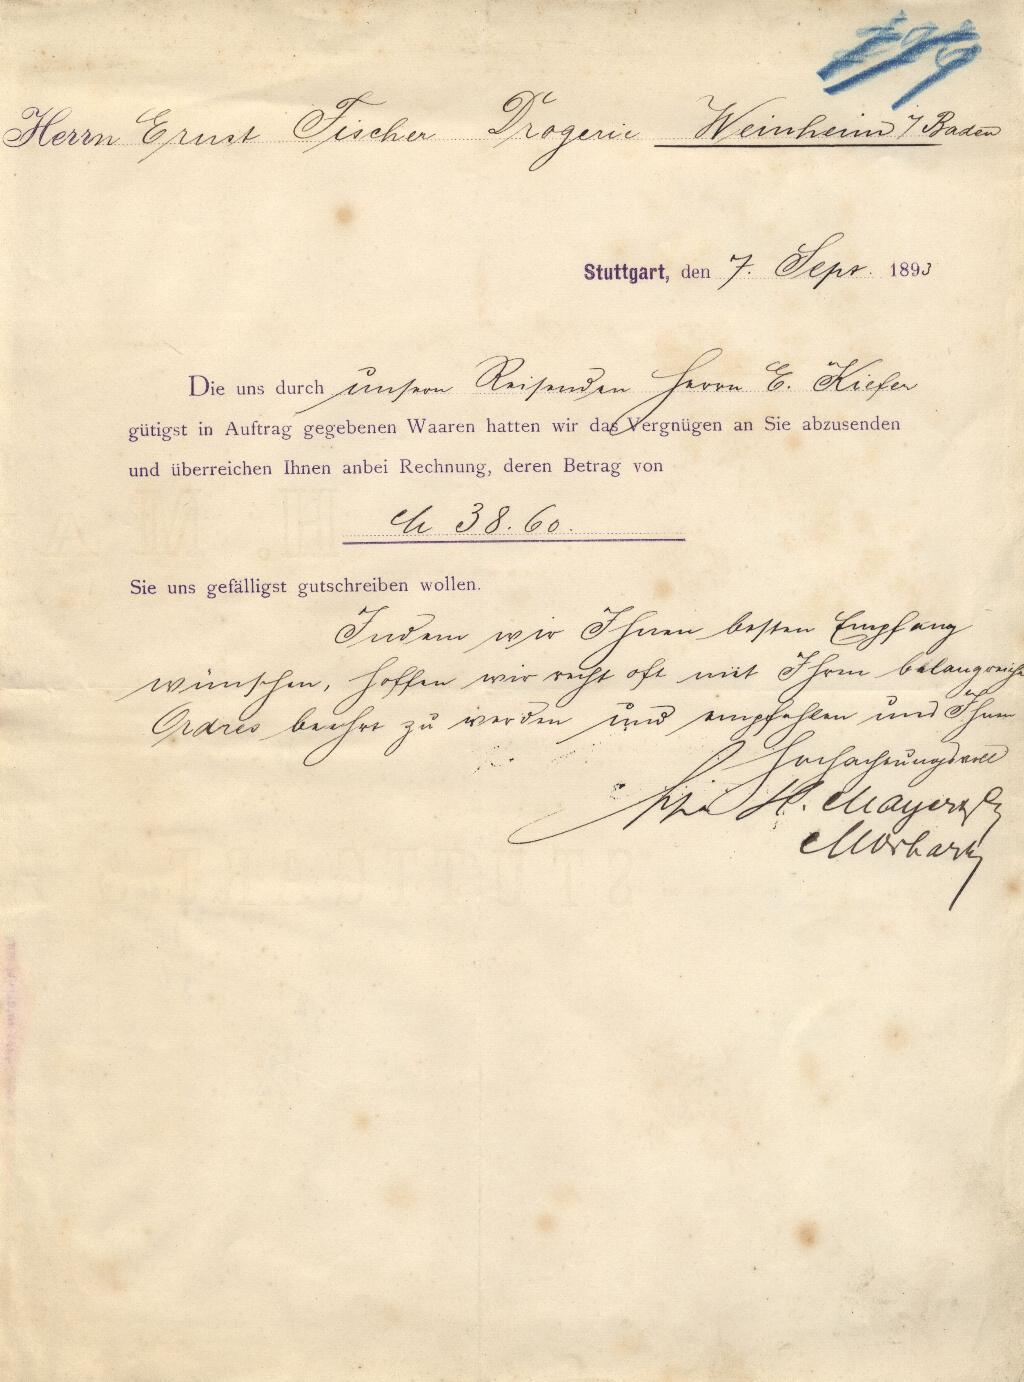 Herrn Ernst Fischer Drogerie Weinheim i/Baden
Stuttgart, den 7. Sept. 1893
Die uns durch unsern Reisenden Herrn E. Kiefer
gütigst in Auftrag gegebenen Waaren hatten wir das Vergnügen an Sie abzusenden
und überreichen Ihnen anbei Rechnung, deren Betrag von
M 38.60.
Sie uns gefälligst gutschreiben wollen.
Indem wir Ihnen besten Empfang
wünschen, hoffen wir recht oft mit Ihren belangreichen
Ordres beehrt zu werden und empfehlen uns Ihnen
Hochachtungsvoll
ppa H. Mayer